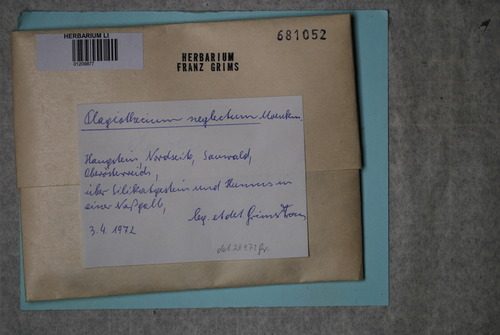 HERBARIUM LI
681052
HERBARIUM
FRANZ GRIMS
Plagiothecium neglectum Moenkem.
Haugstein, Nordseite, Sauwald,
Oberösterreich,
über Silikatgestein und Humus in
einer Naßgalle,
leg. et det. Grims Franz
3. 4. 1972